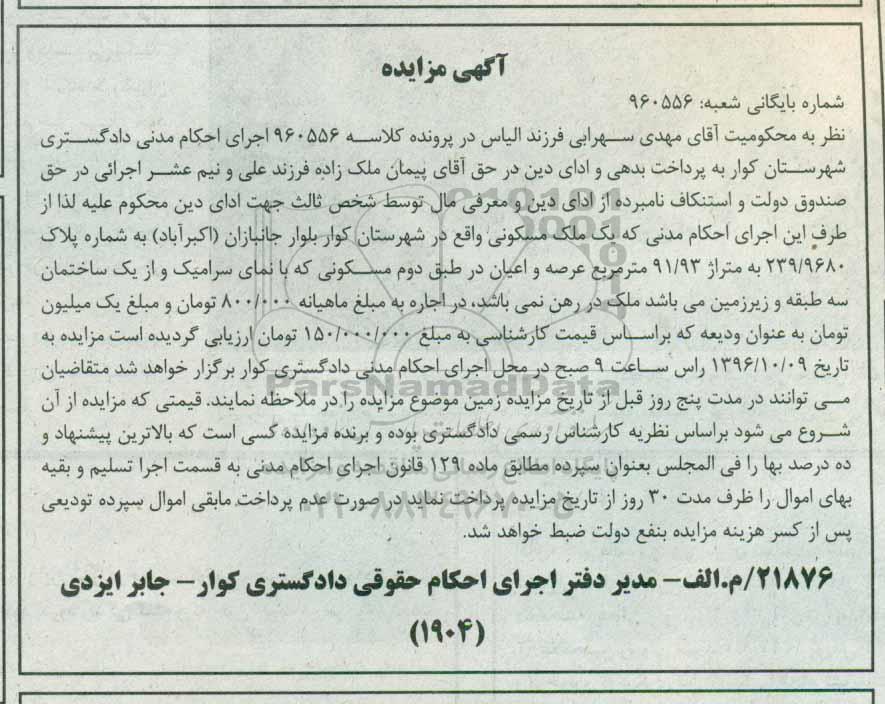 آگهی مزایده
شماره بایگانی شعبه: ۹۶۰۵۵۶
نظر به محکومیت آقای مهدی سهرابی فرزند الیاس در پرونده کلاسه ۹۶۰۵۵۶ اجرای احکام مدنی دادگستری
شهرستان کوار به پرداخت بدهی و ادای دین در حق آقای پیمان ملک زاده فرزند علی و نیم عشر اجرائی در حق
صندوق دولت و استنکاف نامبرده از ادای دین و معرفی مال توسط شخص ثالث جهت ادای دین محکوم علیه لذا از
طرف این اجرای احکام مدنی که یک ملک مسکونی واقع در شهرستان کوار بلوار جانبازان (اکبرآباد) به شماره پلاک
۲۳۹/۹۶۸۰ به متراژ ۹۱/۹۳ مترمربع عرصه و اعیان در طبق دوم مسکونی که با نمای سرامیک و از یک ساختمان
سه طبقه و زیرزمین می باشد ملک در رهن نمی باشد، در اجاره به مبلغ ماهیانه ۸۰۰/۰۰۰ تومان و مبلغ یک میلیون
تومان به عنوان ودیعه که براساس قیمت کارشناسی به مبلغ ۱۵۰/۰۰۰/۰۰۰ تومان ارزیابی گردیده است مزایده به
تاریخ ۱۳۹۶/۱۰/۰۹ راس ساعت ۹ صبح در محل اجرای احکام مدنی دادگستری کوار برگزار خواهد شد متقاضیان
می توانند در مدت پنج روز قبل از تاریخ مزایده زمین موضوع مزایده را در ملاحظه نمایند. قیمتی که مزایده از آن
شروع می شود براساس نظریه کارشناس رسمی دادگستری بوده و برنده مزایده کسی است که بالاترین پیشنهاد و
ده درصد بها را فی المجلس بعنوان سپرده مطابق ماده ۱۲۹ قانون اجرای احکام مدنی به قسمت اجرا تسلیم و بقیه
بهای اموال را ظرف مدت ۳۰ روز از تاریخ مزایده پرداخت نماید در صورت عدم پرداخت مابقی اموال سپرده تودیعی
پس از کسر هزینه مزایده بنفع دولت ضبط خواهد شد.
۲۱۸۷۶/م.الف- مدیر دفتر اجرای احکام حقوقی دادگستری کوار- جابر ایزدی
(۱۹۰۴)
ParsNamadData